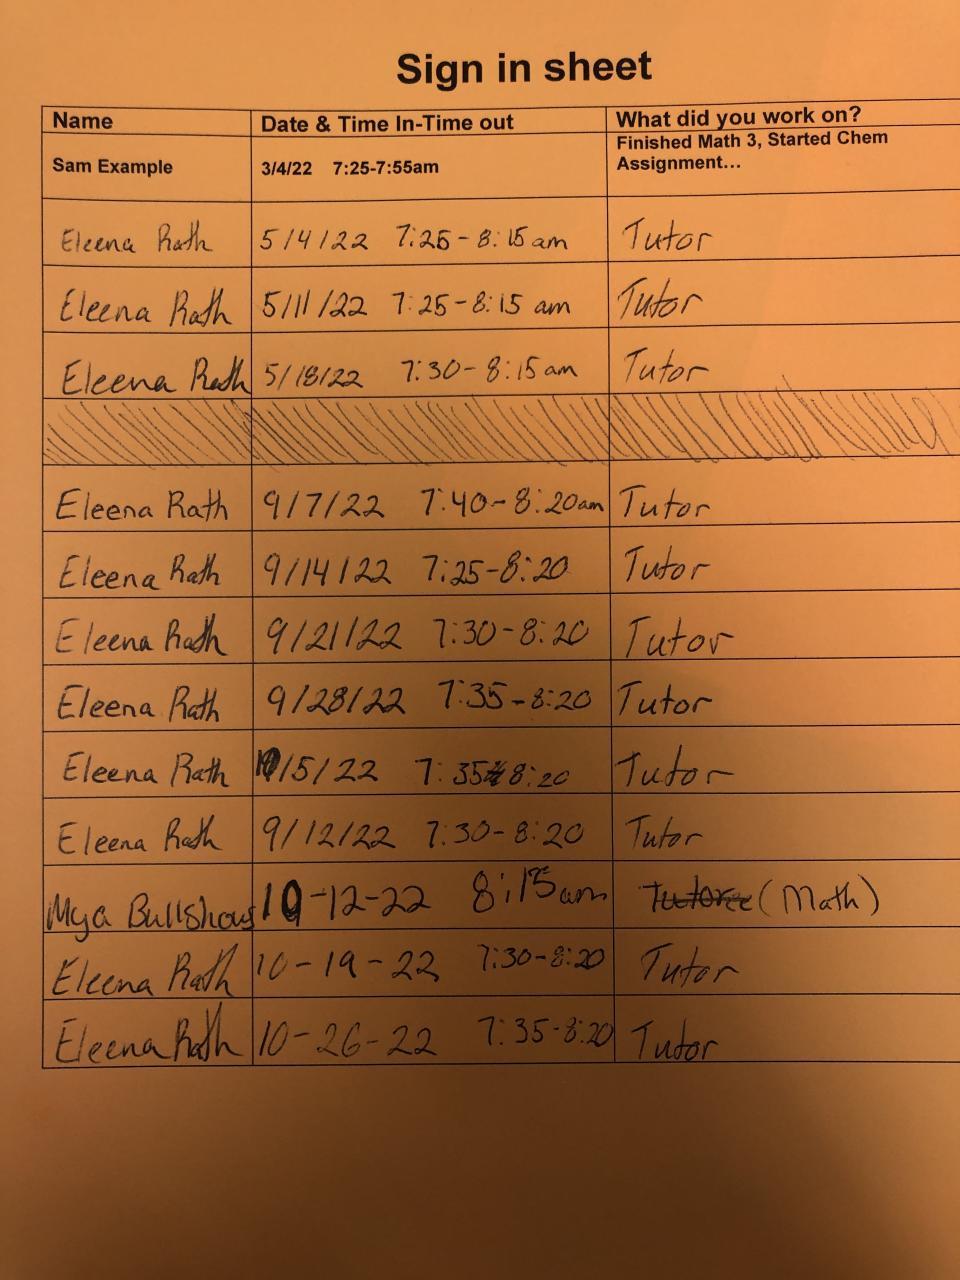 Sign in sheet
Name Date & Time In-Time out What did you work on?
Sam Example 3/4/22 7:25-7:55am Finished Math 3, Started Chem
Assignment...
Eleena Rath 5/4/22 7:25-8:15 am Tutor
Eleena Rath 5/11/22 7:25-8:15 am Tutor
Eleena Rath 5/18/22 7:30-8:15 am Tutor
Eleena Rath 9/7/22 7:40-8:20am Tutor
Eleena Rath 9/14/22 7:25-8:20 Tutor
Eleena Rath 9/21/22 7:30-8:20 Tutor
Eleena Rath 9/28/22 7:35-8:20 Tutor
Eleena Rath 10/5/22 7:35-8:20 Tutor
Eleena Rath 9/12/22 7:30-8:20 Tutor
Mya Bullshows 10-12-22 8:15am (Math)
Eleena Rath 10-19-22 7:30-8:20 Tutor
Eleena Rath 10-26-22 7:35-8:20 Tutor